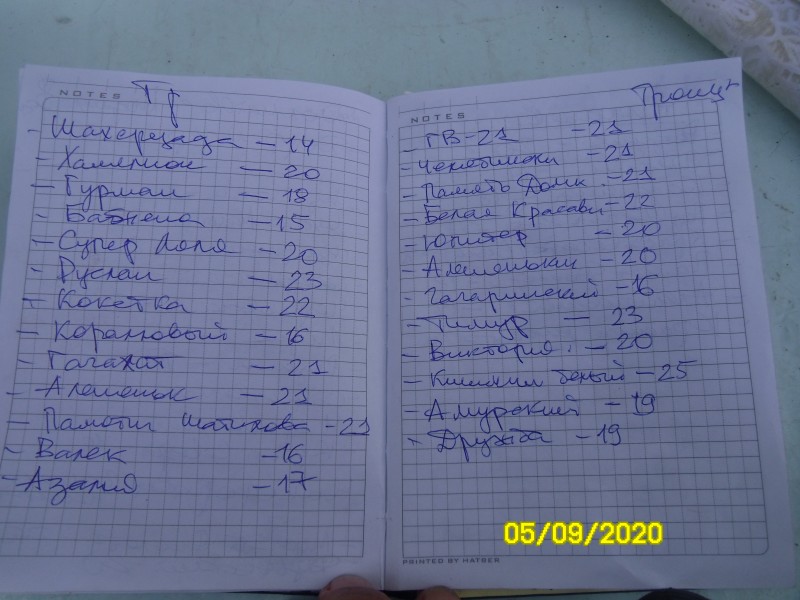 NOTES
Тр
- Шахерезада - 14
- Хамелион - 20
- Гурман - 18
- - 15
- Супер Лоля - 20
- Руслан - 23
- Кокетка - 22
- Коралловый - 16
- Галахат - 21
- Алешеньк - 21
- Памяти Шатилова - 21
- Валек - 16
- Азалия - 17
NOTES
Троицк
- ГВ-21 - 21
- - 21
- Память Домк. - 21
- Белая Красави - 22
- Юпитер - 20
- Алешеньки - 20
- Гагаринский - 16
- Тимур - 23
- Виктория. - 20
- Кишмиш белый - 25
- Амурский - 19
- Дружба - 19
05/09/2020
PRINTED BY HATBER